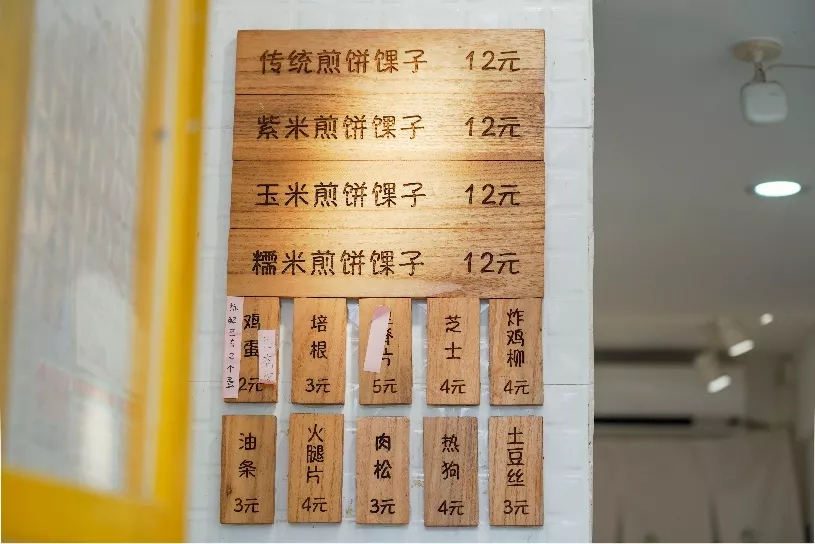 传统煎饼馃子 12元
紫米煎饼馃子 12元
玉米煎饼馃子 12元
糯米煎饼馃子 12元
鸡蛋
2元
培根
3元
片
5元
芝士
4元
炸鸡柳
4元
油条
3元
火腿片
4元
肉松
3元
热狗
4元
土豆丝
3元